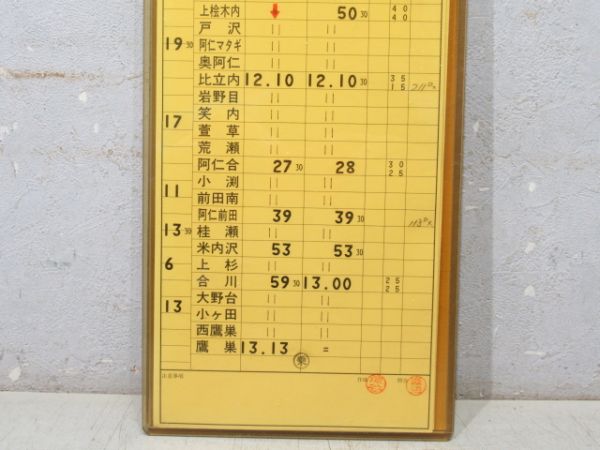 上桧木内 ↓ 50 30 40 40
戸沢 || ||
19 30 阿仁マタギ || ||
奥阿仁 || ||
比立内 12.10 12.10 30 35 15
岩野目 || ||
17 笑内 || ||
萱草 || ||
荒瀬 || ||
阿仁合 27 30 28 30 25
小渕 || ||
11 前田南 || ||
阿仁前田 39 39 30
13 30 桂瀬 || ||
米内沢 53 53 30
6 上杉 || ||
合川 59 30 13.00 25 25
13 大野台 || ||
小ヶ田 || ||
西鷹巣 || ||
鷹巣 13.13 =
乗
注意事項